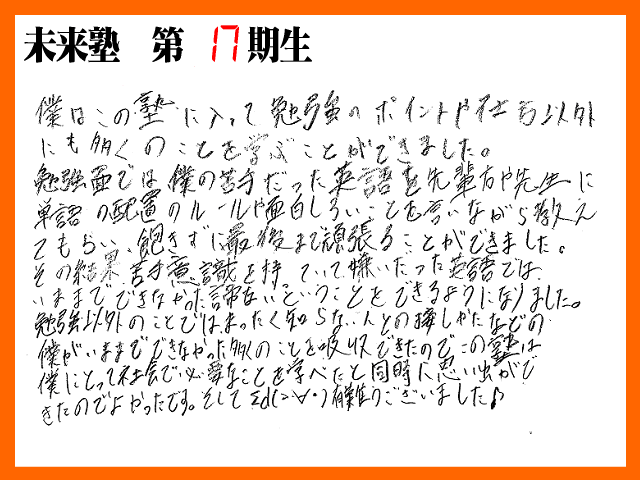 未来塾 第 17 期生
僕はこの塾に入って勉強のポイントや社会以外
にも多くのことを学ぶことができました。
勉強面では僕の苦手だった英語を先輩方や先生に
単語の配置のルールや面白しろいことを言いながら教え
てもらい、飽きずに最後まで頑張ることができました。
その結果 苦手意識を持っていて嫌いだった英語では、
いままでできなかった諦めないということをできるようになりました。
勉強以外のことではまったく知らない人との接しかたなどの
僕がいままでできなかった多くのことを吸収できたのでこの塾は
僕にとって社会で必要なことを学べたと同時に思い出がで
きたのでよかったです。そして Σd(>∀・)有難うございました♪